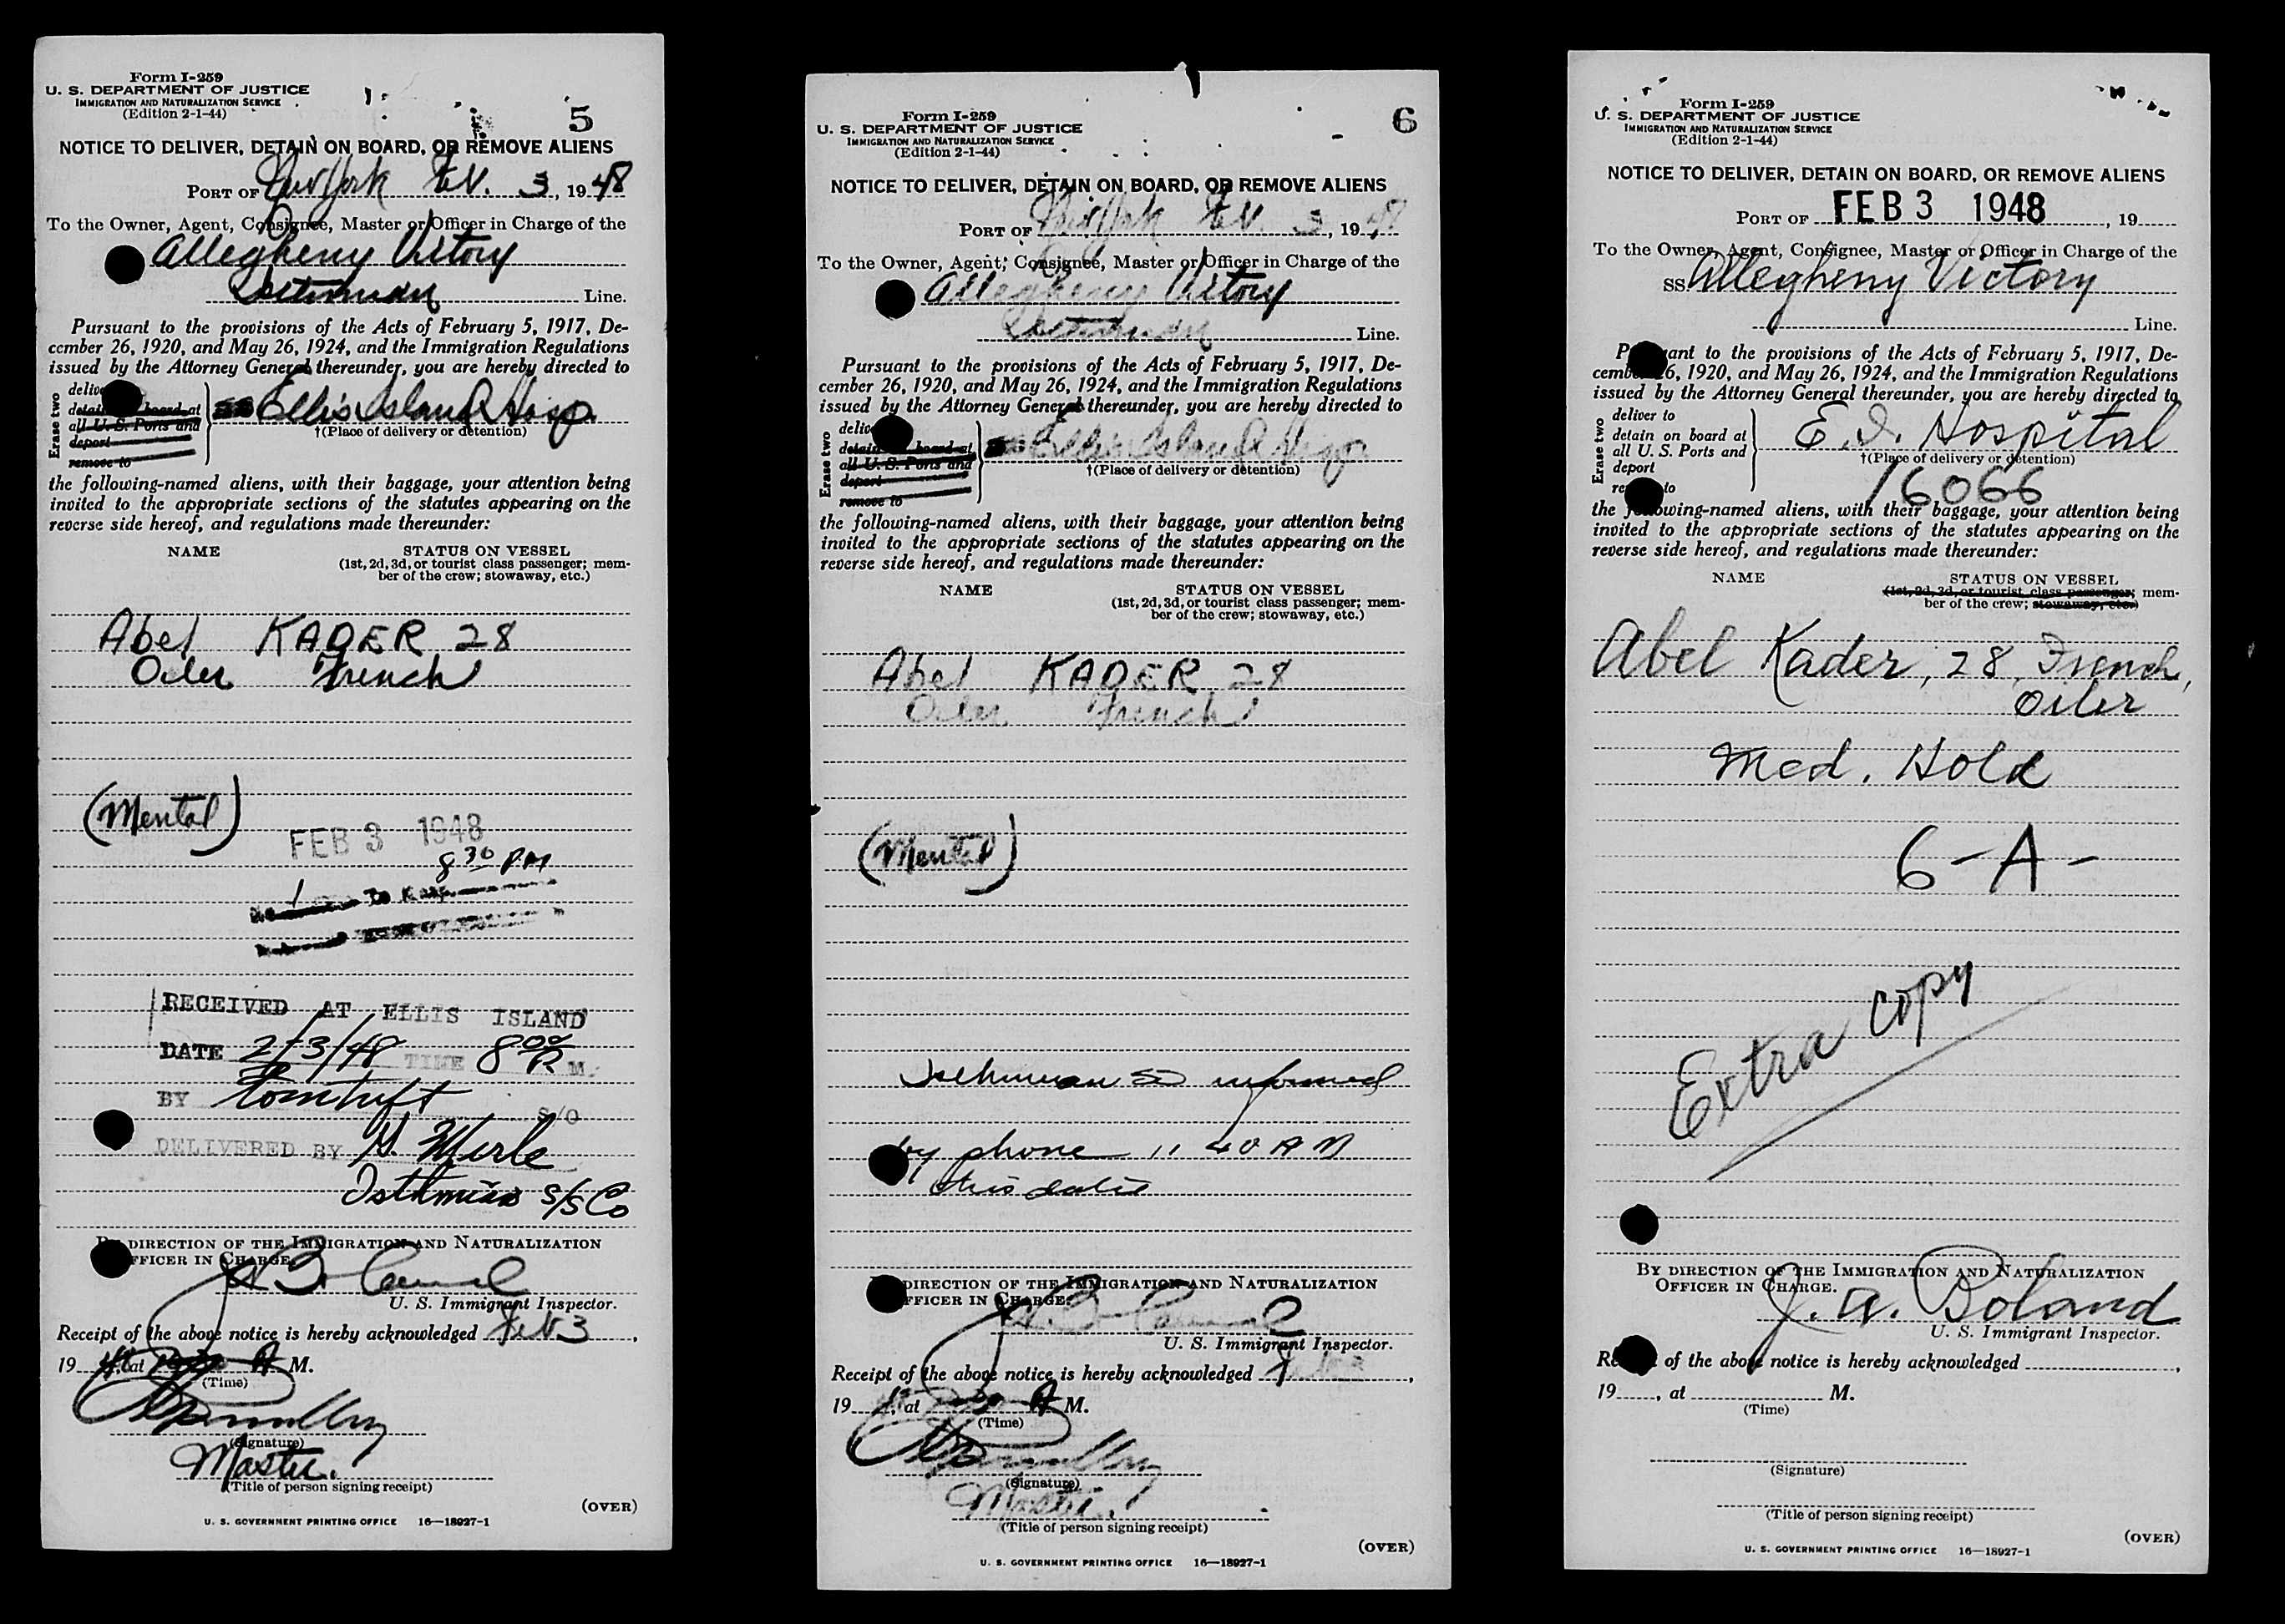 Form I-259
U. S. DEPARTMENT OF JUSTICE
IMMIGRATION AND NATURALIZATION SERVICE
(Edition 2-1-44)
5
NOTICE TO DELIVER, DETAIN ON BOARD, OR REMOVE ALIENS
PORT OF New York Feb. 3, 1948
To the Owner, Agent, Consignee, Master or Officer in Charge of the
Allegheny Victory
Line.
Pursuant to the provisions of the Acts of February 5, 1917, De-
cember 26, 1920, and May 26, 1924, and the Immigration Regulations
issued by the Attorney General thereunder, you are hereby directed to
Erase two
detain on board at
all U. S. Ports and
deport
remove to
Ellis Island Hosp.
†(Place of delivery or detention)
the following-named aliens, with their baggage, your attention being
invited to the appropriate sections of the statutes appearing on the
reverse side hereof, and regulations made thereunder:
NAME STATUS ON VESSEL
(1st, 2d, 3d, or tourist class passenger; mem-
ber of the crew; stowaway, etc.)
Abel KADER 28
Oiler French
(Mental)
FEB 3 1948
8 30 PM
RECEIVED AT ELLIS ISLAND
DATE 2/3/48 TIME 8 00 P M.
BY
S/O
DELIVERED BY H. Merle
Isthmian S/S Co
BY DIRECTION OF THE IMMIGRATION AND NATURALIZATION
OFFICER IN CHARGE.
U. S. Immigrant Inspector.
Receipt of the above notice is hereby acknowledged Feb 3,
1948, at A M.
(Time)
(Signature)
Master.
(Title of person signing receipt)
(OVER)
U. S. GOVERNMENT PRINTING OFFICE 16—18927-1
Form I-259
U. S. DEPARTMENT OF JUSTICE
IMMIGRATION AND NATURALIZATION SERVICE
(Edition 2-1-44)
6
NOTICE TO DELIVER, DETAIN ON BOARD, OR REMOVE ALIENS
PORT OF New York Feb. 3, 1948
To the Owner, Agent, Consignee, Master or Officer in Charge of the
Allegheny Victory
Line.
Pursuant to the provisions of the Acts of February 5, 1917, De-
cember 26, 1920, and May 26, 1924, and the Immigration Regulations
issued by the Attorney General thereunder, you are hereby directed to
Erase two
detain on board at
all U. S. Ports and
deport
remove to
Ellis Island Hosp
†(Place of delivery or detention)
the following-named aliens, with their baggage, your attention being
invited to the appropriate sections of the statutes appearing on the
reverse side hereof, and regulations made thereunder:
NAME STATUS ON VESSEL
(1st, 2d, 3d, or tourist class passenger; mem-
ber of the crew; stowaway, etc.)
Abel KADER 28
Oiler French
(Mental)
Isthmian SS informed
by phone 11 40 AM
this date
BY DIRECTION OF THE IMMIGRATION AND NATURALIZATION
OFFICER IN CHARGE.
U. S. Immigrant Inspector.
Receipt of the above notice is hereby acknowledged
19 , at A M.
(Time)
(Signature)
Master.
(Title of person signing receipt)
(OVER)
U. S. GOVERNMENT PRINTING OFFICE 16—18927-1
Form I-259
U. S. DEPARTMENT OF JUSTICE
IMMIGRATION AND NATURALIZATION SERVICE
(Edition 2-1-44)
NOTICE TO DELIVER, DETAIN ON BOARD, OR REMOVE ALIENS
PORT OF FEB 3 1948, 19
To the Owner, Agent, Consignee, Master or Officer in Charge of the
SS. Allegheny Victory
Line.
Pursuant to the provisions of the Acts of February 5, 1917, De-
cember 26, 1920, and May 26, 1924, and the Immigration Regulations
issued by the Attorney General thereunder, you are hereby directed to
Erase two
deliver to
detain on board at
all U. S. Ports and
deport
remove to
E. I. Hospital
†(Place of delivery or detention)
16066
the following-named aliens, with their baggage, your attention being
invited to the appropriate sections of the statutes appearing on the
reverse side hereof, and regulations made thereunder:
NAME STATUS ON VESSEL
(1st, 2d, 3d, or tourist class passenger; mem-
ber of the crew; stowaway, etc.)
Abel Kader, 28, French,
Oiler
Med. Hold
6-A-
Extra copy
BY DIRECTION OF THE IMMIGRATION AND NATURALIZATION
OFFICER IN CHARGE.
J. A. Boland
U. S. Immigrant Inspector.
Receipt of the above notice is hereby acknowledged ,
19 , at M.
(Time)
(Signature)
(Title of person signing receipt)
(OVER)
U. S. GOVERNMENT PRINTING OFFICE 16—18927-1